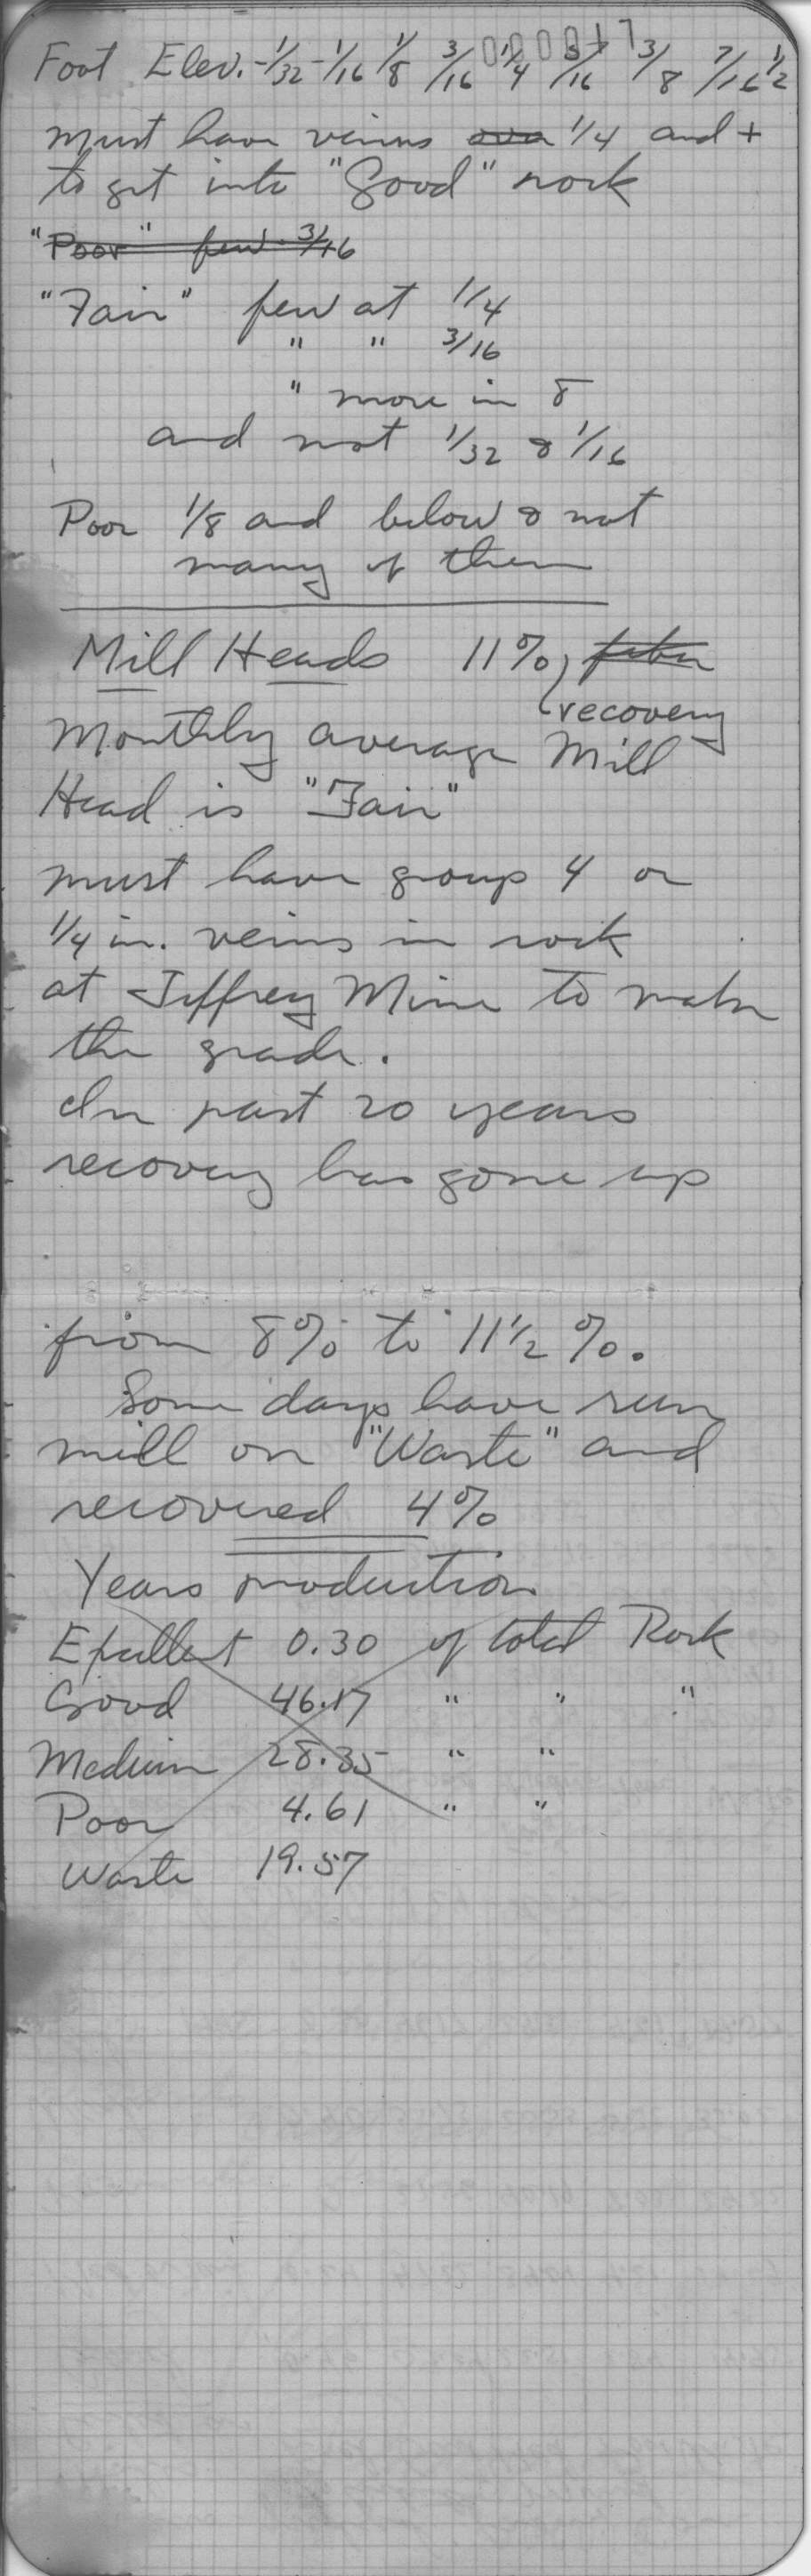 Foot Elev. -1/32 -1/16 1/8 3/16 1/4 5/16 3/8 7/16 1/2
000017
must have veins over 1/4 and +
to get into "Good" rock
"Poor" few 3/16
"Fair" few at 1/4
" " 3/16
" more in 8
and not 1/32 & 1/16
Poor 1/8 and below & not
many of them
Mill Heads 11% fiber
recovery
Monthly average Mill
Head is "Fair"
must have group 4 or
1/4 in. veins in rock
at Jeffrey Mine to make
the grade.
In past 20 years
recovery has gone up
from 8% to 11 1/2 %.
Some days have run
mill on "Waste" and
recovered 4%
Years production
Exellent 0.30 of total Rock
Good 46.17 " " "
Medium 28.35 " "
Poor 4.61 " "
Waste 19.57